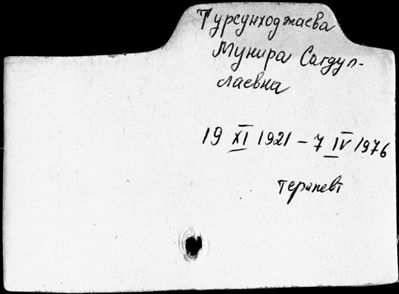 Турсунходжаева
Мунира Сагдул-
лаевна
19 XI 1921 - 7 IV 1976
терапевт